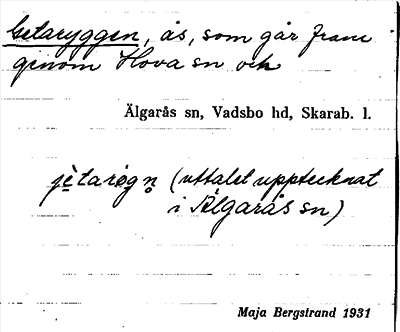 Getaryggen, ås, som går fram
genom Hova sn och
Älgarås sn, Vadsbo hd, Skarab. l.
jètarøgn̥ (uttalet upptecknat
i Älgarås sn)
Maja Bergstrand 1931